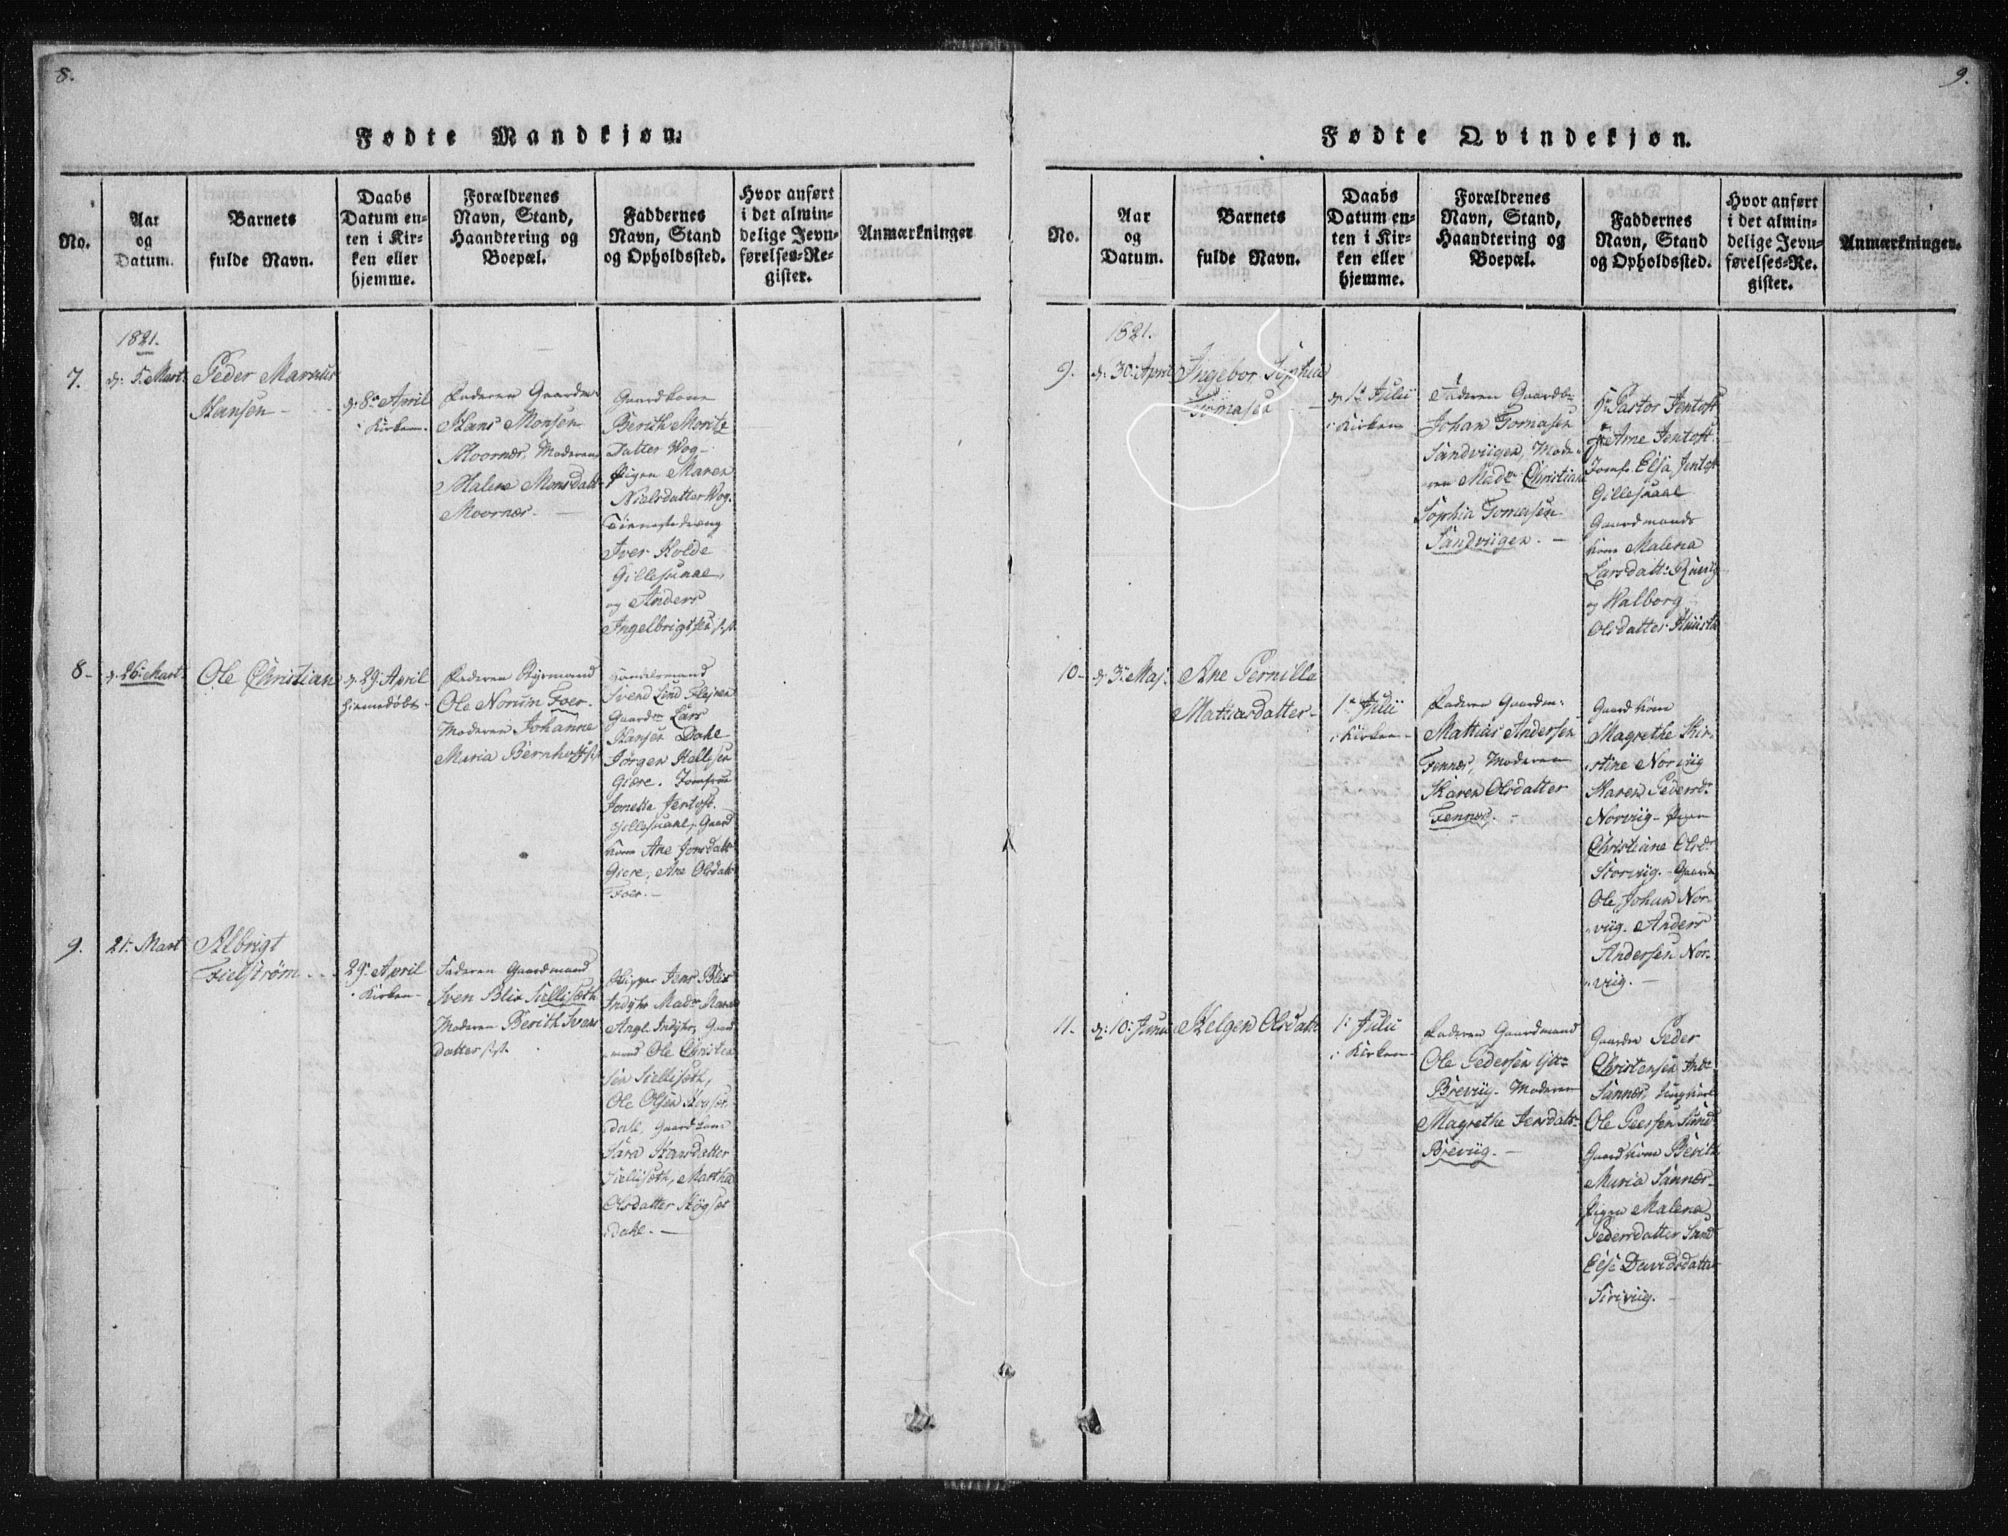 8.
Fødte Mandkjøn.
No.
Aar
og
Datum.
Barnets
fulde Navn.
Daabs
Datum en-
ten i Kir-
ken eller
hjemme.
Forældrenes
Navn, Stand,
Haandtering og
Boepæl.
Faddernes
Navn, Stand
og Opholdssted.
Hvor anført
i det almin-
delige Jevn-
førelses-Re-
gister.
Anmærkninger
1821.
7.
d. 5. Mart.
Peder Marius
Hansen
d. 8de April
i Kirken.
Faderen Gaardm.
Hans Monsen
Moornæs, Moderen
Malene Monsdatt.
Moornæs.
Gaardkone
Berith Moritz
Datter Vog
Pigen Maren
Nielsdatter Vog.
Tienestedreng
Iver Kolde
Gillesuaal,
og Anders
Ingelbrigtsen
8
d. 26. Mart.
Ole Christian
d. 29. April
hiemedøbt
Faderen Styrmand
Ole Norum Foer.
Moderen Johanne
Maria Bernhoft
Handelsmand
Svend Lind
Gaardm. Lars
Hansen Dahl
Jörgen Kellisen
Giære. Jomfrue
Jentoft.
Gillesuaal, Gaard
kone Ane Jonsdatt.
Giære, Ane Olsdatt.
Foer.
9.
21. Mart
Albrigt
Fielstrøm
29. April
i Kirken
Faderen Gaardmand
Sven Blix
Moderen Berith Svens
datter
Skipper Jens Blix
Indyhr Mad. Maren
Angl. Indyhr, Gaard
mand Ole Christen
sen
Ole Olsen
dahl, Gaardkone
Sara Hansdatter
Martha
Olsdatter
dahl.
9.
Fødte Qvindekjøn.
No.
Aar
og
Datum.
Barnets
fulde Navn.
Daabs
Datum en-
ten i Kir-
ken eller
hjemme.
Forældrenes
Navn, Stand,
Haandtering og
Boepæl.
Faddernes
Navn, Stand
og Opholdssted.
Hvor anført
i det almin-
delige Jevn-
førelses-Re-
gister.
Anmærkninger.
1821.
9.
d. 30. April
Ingebor Sophia
Tomasen
d. 1. Julii
i Kirken
Faderen Gaardbr.
Johan Tomasen
Sandviigen, Mode-
ren Mad. Christiane
Sophia Tomasen
Sandviigen.
Hr. Pastor Jentoft
Arne Jentoft
Jomf. Elsa Jentoft
Gillesuaal
Gaardmands
kone Malena
Larsdatt.
og Walborg
Olsdatter
10
d. 3. Maj.
Ane Pernilla
Mattiasdatter
1. Julii
i Kirken
Faderen Gaardm.
Mattias Andersen
Fennes, Moderen
Karen Olsdatter
Fennes.
Gaardkone
Magrethe Kir-
stine Norviig
Maren Pedersd.
Norviig. Pigen
Christiane Olsd.
Storviig. Gaardm.
Ole Johan Nor-
viig. Anders
Andersen Nor-
viig.
11.
d. 10. Junii
Helgen Olsdatt.
1. Julii
i Kirken
Faderen Gaardmand
Ole Pedersen
Breviig. Moderen
Magrethe Jensdatt.
Breviig.
Gaardm. Peder
Christensen
Sannæs,
Ole
Gaardkone Berith
Maria Sannæs
Pigen Malena
Pedersdatter Sund
Else Davidsdatter